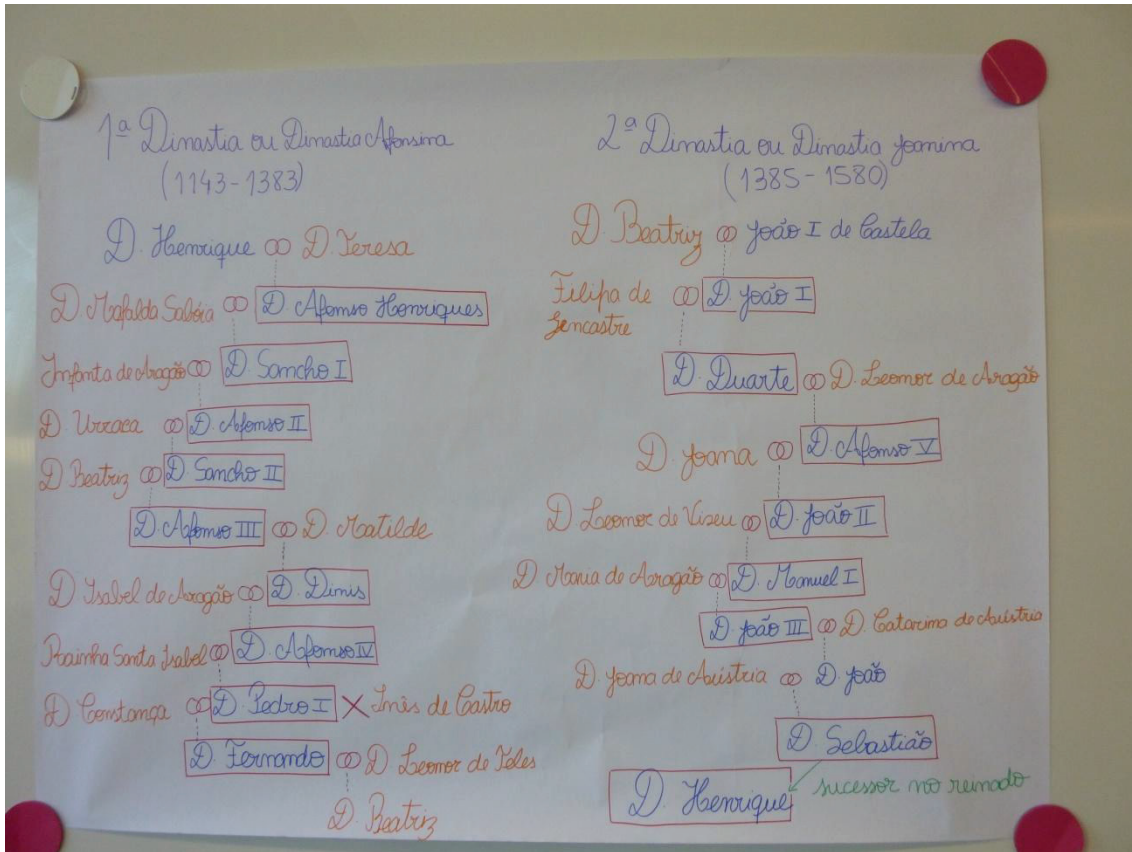 1ª Dinastia ou Dinastia Afonsina
(1143-1383)
D. Henrique D. Teresa
D Mafalda Sabóia D. Afonso Henriques
Infanta de Aragão D. Sancho I
D. Urraca D. Afonso II
D Beatriz D Sancho II
D. Afonso III D. Matilde
D Isabel de Aragão D. Dinis
Rainha Santa Isabel D. Afonso IV
D Constança D. Pedro I X Inês de Castro
D. Fernando D Leonor de Teles
D. Beatriz
2ª Dinastia ou Dinastia Joanina
(1385-1580)
D. Beatriz João I de Castela
Filipa de D. João I
Lencastre
D. Duarte D. Leonor de Aragão
D. Joana D. Afonso V
D Leonor de Viseu D. João II
D Maria de Aragão D. Manuel I
D João III D. Catarina de Áustria
D. Joana de Áustria D. João
D. Sebastião
D. Henrique sucessor no reinado